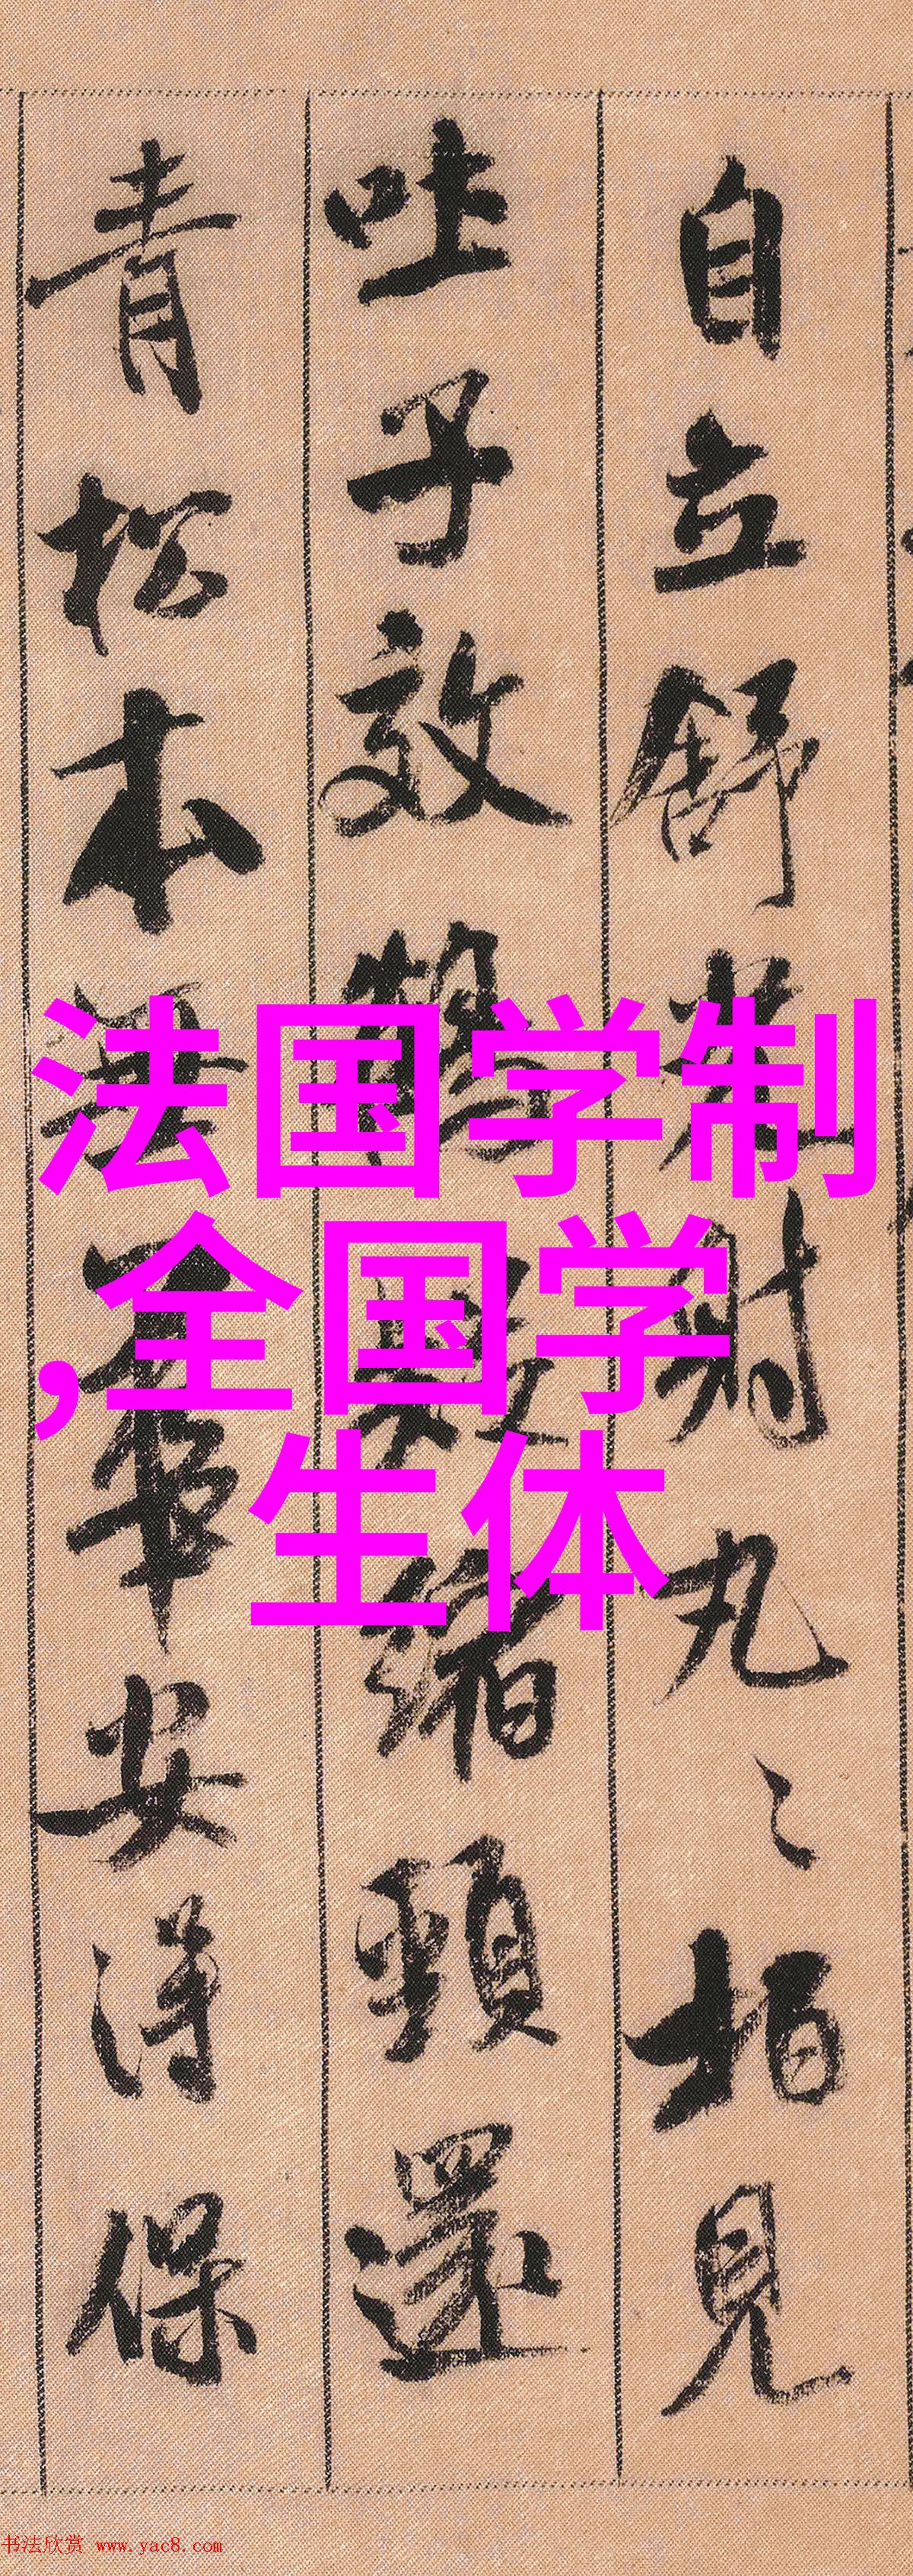 自立舒光射丸〻柏見
吐子效鶴疑縮頸還
青松本無華安得保
法国学制
,全国学
生体
书法欣赏 www.yac8.com